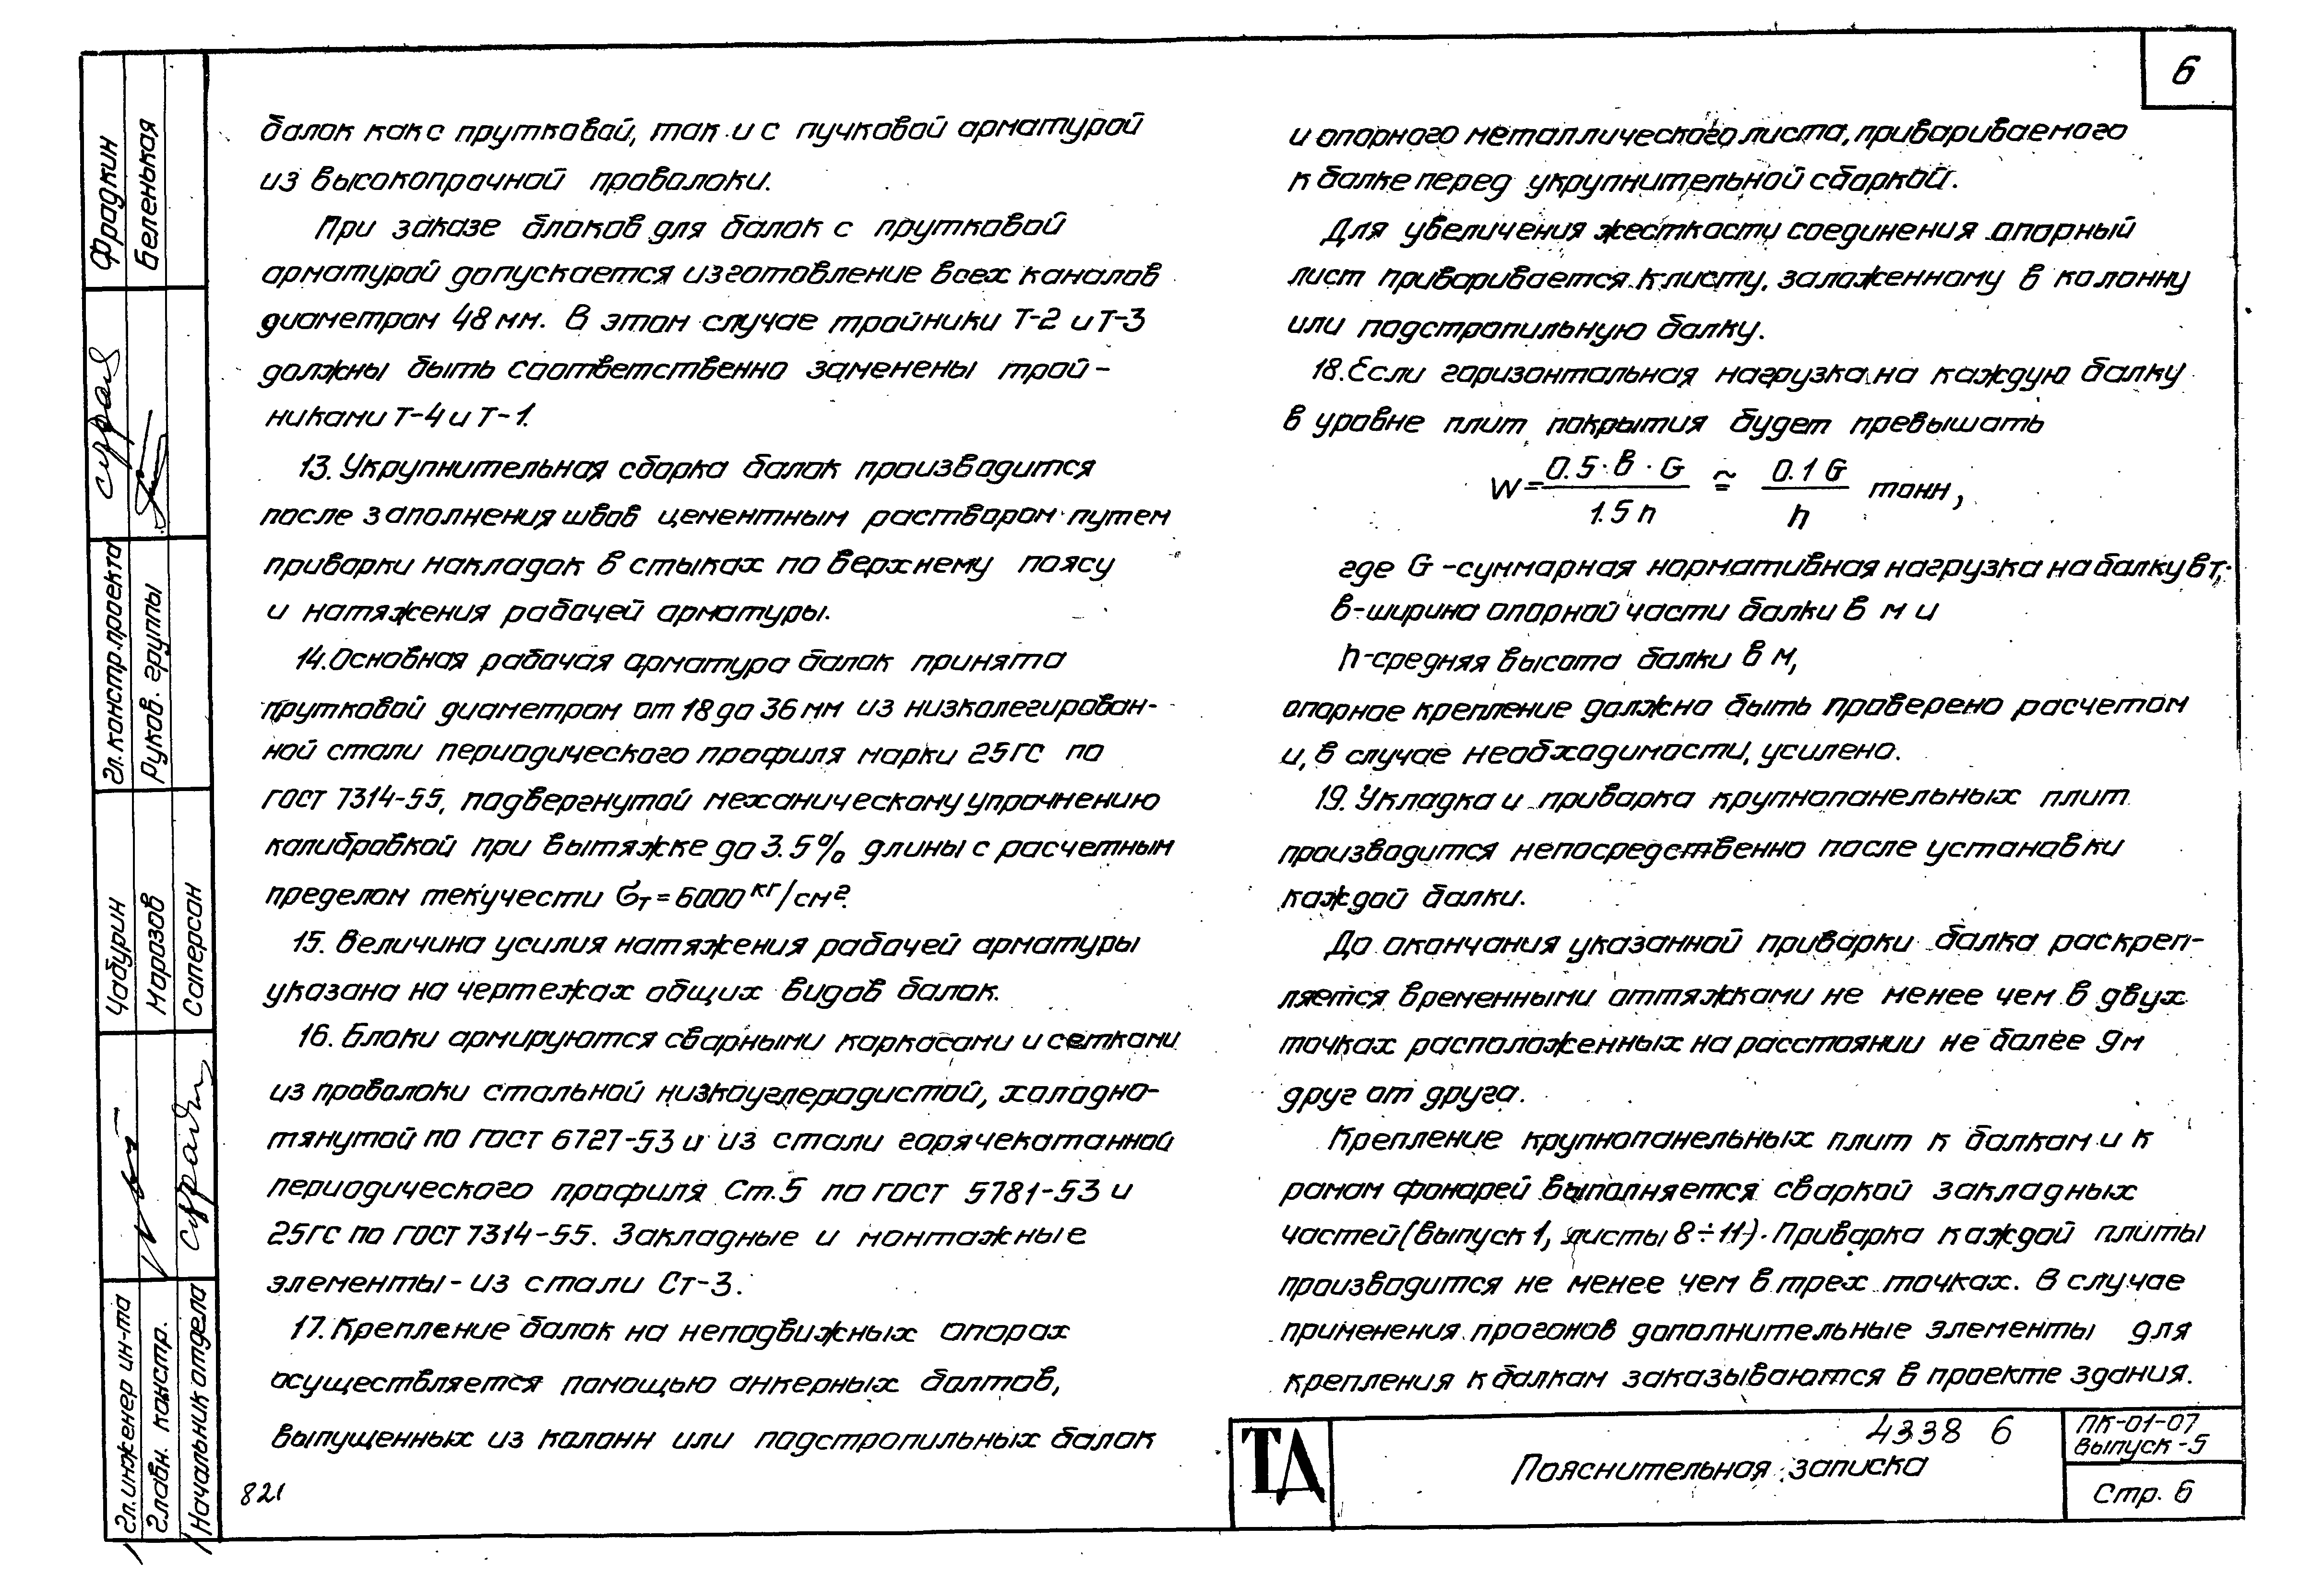 6
балок как с прутковой, так и с пучковой арматурой
из высокопрочной проволоки.
При заказе блоков для балок с прутковой
арматурой допускается изготовление всех каналов
диаметром 48 мм. В этом случае тройники Т-2 и Т-3
должны быть соответственно заменены трой-
никами Т-4 и Т-1.
13. Укрупнительная сборка балок производится
после заполнения швов цементным раствором путем
приварки накладок в стыках по верхнему поясу
и натяжения рабочей арматуры.
14. Основная рабочая арматура балок принята
прутковой диаметром от 18 до 36 мм из низколегирован-
ной стали периодического профиля марки 25ГС по
ГОСТ 7314-55, подвергнутой механическому упрочнению
калибровкой при вытяжке до 3.5% длины с расчетным
пределом текучести σт = 6000 кг/см².
15. Величина усилия натяжения рабочей арматуры
указана на чертежах общих видов балок.
16. Блоки армируются сварными каркасами и сетками
из проволоки стальной низкоуглеродистой, холодно-
тянутой по ГОСТ 6727-53 и из стали горячекатанной
периодического профиля Ст.5 по ГОСТ 5781-53 и
25ГС по ГОСТ 7314-55. Закладные и монтажные
элементы - из стали Ст-3.
17. Крепление балок на неподвижных опорах
осуществляется помощью анкерных болтов,
выпущенных из колонн или подстропильных балок
821
и опорного металлического листа, привариваемого
к балке перед укрупнительной сборкой.
Для увеличения жесткости соединения опорный
лист приваривается к листу, заложенному в колонну
или подстропильную балку.
18. Если горизонтальная нагрузка на каждую балку
в уровне плит покрытия будет превышать
W = 0.5·в·G / 1.5h ≃ 0.1G / h тонн,
где G - суммарная нормативная нагрузка на балку в т,
в - ширина опорной части балки в м и
h - средняя высота балки в м,
опорное крепление должно быть проверено расчетом
и, в случае необходимости, усилено.
19. Укладка и приварка крупнопанельных плит
производится непосредственно после установки
каждой балки.
До окончания указанной приварки балка раскреп-
ляется временными оттяжками не менее чем в двух
точках расположенных на расстоянии не более 9м
друг от друга.
Крепление крупнопанельных плит к балкам и к
рамам фонарей выполняется сваркой закладных
частей (выпуск 1, листы 8÷11). Приварка каждой плиты
производится не менее чем в трех точках. В случае
применения прогонов дополнительные элементы для
крепления к балкам заказываются в проекте здания.
ТД
Пояснительная записка
4338 6
ПК-01-07
Выпуск-5
Стр. 6
Фрадкин
Беленькая
Гл. констр. проекта
Руков. группы
Чабурин
Морозов
Саперсон
Гл. инженер ин-та
Главн. констр.
Начальник отдела